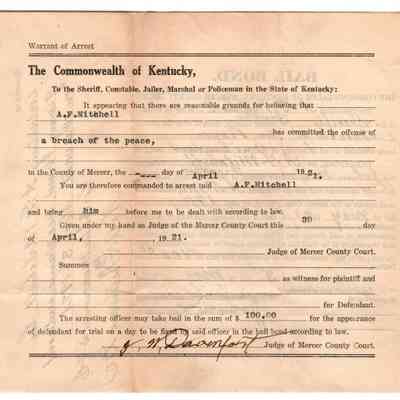 Warrant of Arrest
The Commonwealth of Kentucky,
To the Sheriff, Constable, Jailer, Marshal or Policeman in the State of Kentucky:
It appearing that there are reasonable grounds for believing that
A.F.Mitchell
has committed the offense of
a breach of the peace,
in the County of Mercer, the ---- day of April 1921.
You are therefore commanded to arrest said A.F.Mitchell
and bring him before me to be dealt with according to law.
Given under my hand as Judge of the Mercer County Court this 30 day
of April, 1921.
Judge of Mercer County Court.
Summon
as witness for plaintiff and
for Defendant.
The arresting officer may take bail in the sum of $ 100.00 for the appearance
of defendant for trial on a day to be fixed by said officer in the bail bond according to law.
J. W. Davenport Judge of Mercer County Court.